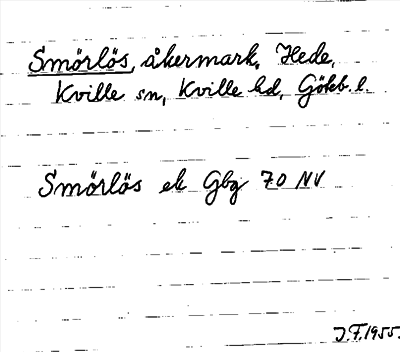 Smörlös, åkermark, Hede,
Kville sn, Kville hd, Göteb. l.
Smörlös ek Gbg 70 NV
J.F. 1955.